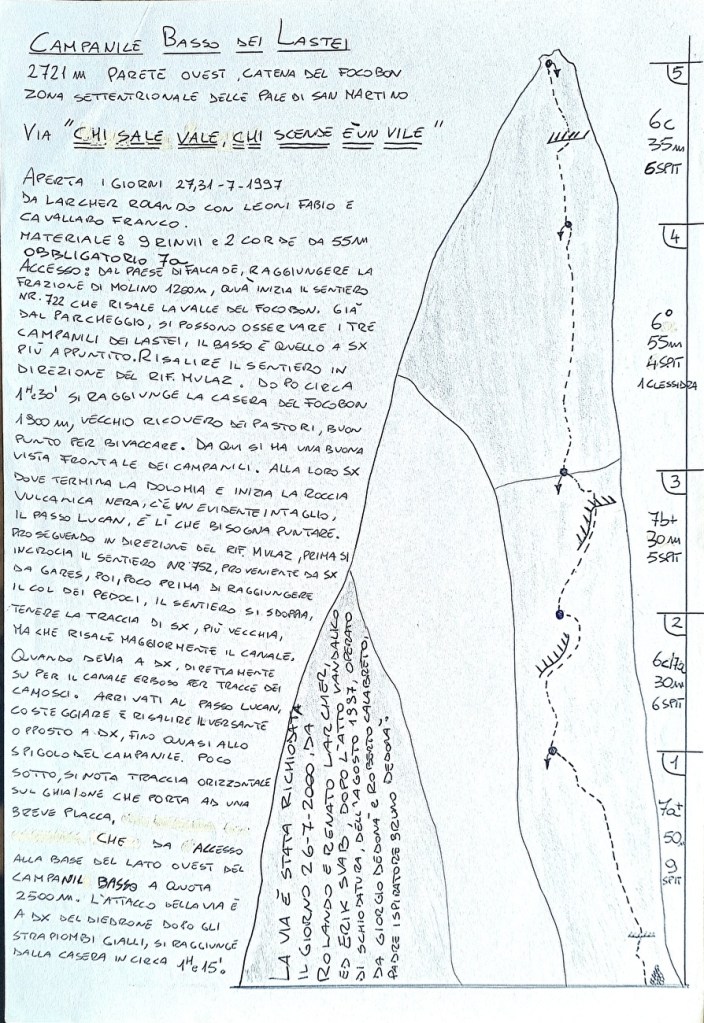 CAMPANILE BASSO DEI LASTEI
2721 m PARETE OVEST, CATENA DEL FOCOBON
ZONA SETTENTRIONALE DELLE PALE DI SAN MARTINO
VIA "CHI SALE VALE, CHI SCENDE È UN VILE"
APERTA I GIORNI 27,31-7-1997
DA LARCHER ROLANDO CON LEONI FABIO E
CAVALLARO FRANCO.
MATERIALE: 9 RINVII e 2 CORDE DA 55M
OBBLIGATORIO 7a
ACCESSO: DAL PAESE DI FALCADE, RAGGIUNGERE LA
FRAZIONE DI MOLINO 1200m, QUÀ INIZIA IL SENTIERO
NR. 722 CHE RISALE LA VALLE DEL FOCOBON. GIÀ
DAL PARCHEGGIO, SI POSSONO OSSERVARE I TRE
CAMPANILI DEI LASTEI, IL BASSO È QUELLO A SX
PIÙ APPUNTITO. RISALIRE IL SENTIERO IN
DIREZIONE DEL RIF. MULAZ. DOPO CIRCA
1H e 30' SI RAGGIUNGE LA CASERA DEL FOCOBON
1900 m, VECCHIO RICOVERO DEI PASTORI, BUON
PUNTO PER BIVACCARE. DA QUI SI HA UNA BUONA
VISTA FRONTALE DEI CAMPANILI. ALLA LORO SX
DOVE TERMINA LA DOLOMIA E INIZIA LA ROCCIA
VULCANICA NERA, C'È UN EVIDENTE INTAGLIO,
IL PASSO LUCAN, È LÌ CHE BISOGNA PUNTARE.
PROSEGUENDO IN DIREZIONE DEL RIF. MULAZ, PRIMA SI
INCROCIA IL SENTIERO NR 752, PROVENIENTE DA SX
DA GARES, POI, POCO PRIMA DI RAGGIUNGERE
IL COL DEI PEDOCI, IL SENTIERO SI SDOPPIA,
TENERE LA TRACCIA DI SX, PIÙ VECCHIA,
MA CHE RISALE MAGGIORMENTE IL CANALE.
QUANDO DEVIA A DX, DIRETTAMENTE
SU PER IL CANALE ERBOSO PER TRACCE DEI
CAMOSCI. ARRIVATI AL PASSO LUCAN,
COSTEGGIARE E RISALIRE IL VERSANTE
OPPOSTO A DX, FINO QUASI ALLO
SPIGOLO DEL CAMPANILE. POCO
SOTTO, SI NOTA TRACCIA ORIZZONTALE
SUL GHIAIONE CHE PORTA AD UNA
BREVE PLACCA,
CHE DA L'ACCESSO
ALLA BASE DEL LATO OVEST DEL
CAMPANIL BASSO A QUOTA
2500m. L'ATTACCO DELLA VIA È
A DX DEL DIEDRONE DOPO GLI
STRAPIOMBI GIALLI, SI RAGGIUNGE
DALLA CASERA IN CIRCA 1H e 15'.
LA VIA È STATA RICHIODATA
IL GIORNO 26-7-2000, DA
ROLANDO E RENATO LARCHER,
ED ERIK SVAB, DOPO L'ATTO VANDALICO
DI SCHIODATURA, DELL'AGOSTO 1997, OPERATO
DA GIORGIO DEDONÀ e ROBERTO CALABRETO,
PADRE ISPIRATORE BRUNO DEDONÀ,
5
6c
35m
6 SPIT
4
6°
55m
4 SPIT
1 CLESSIDRA
3
7b+
30m
5 SPIT
2
6c/7a
30m
6 SPIT
1
7a+
50m
9
SPIT